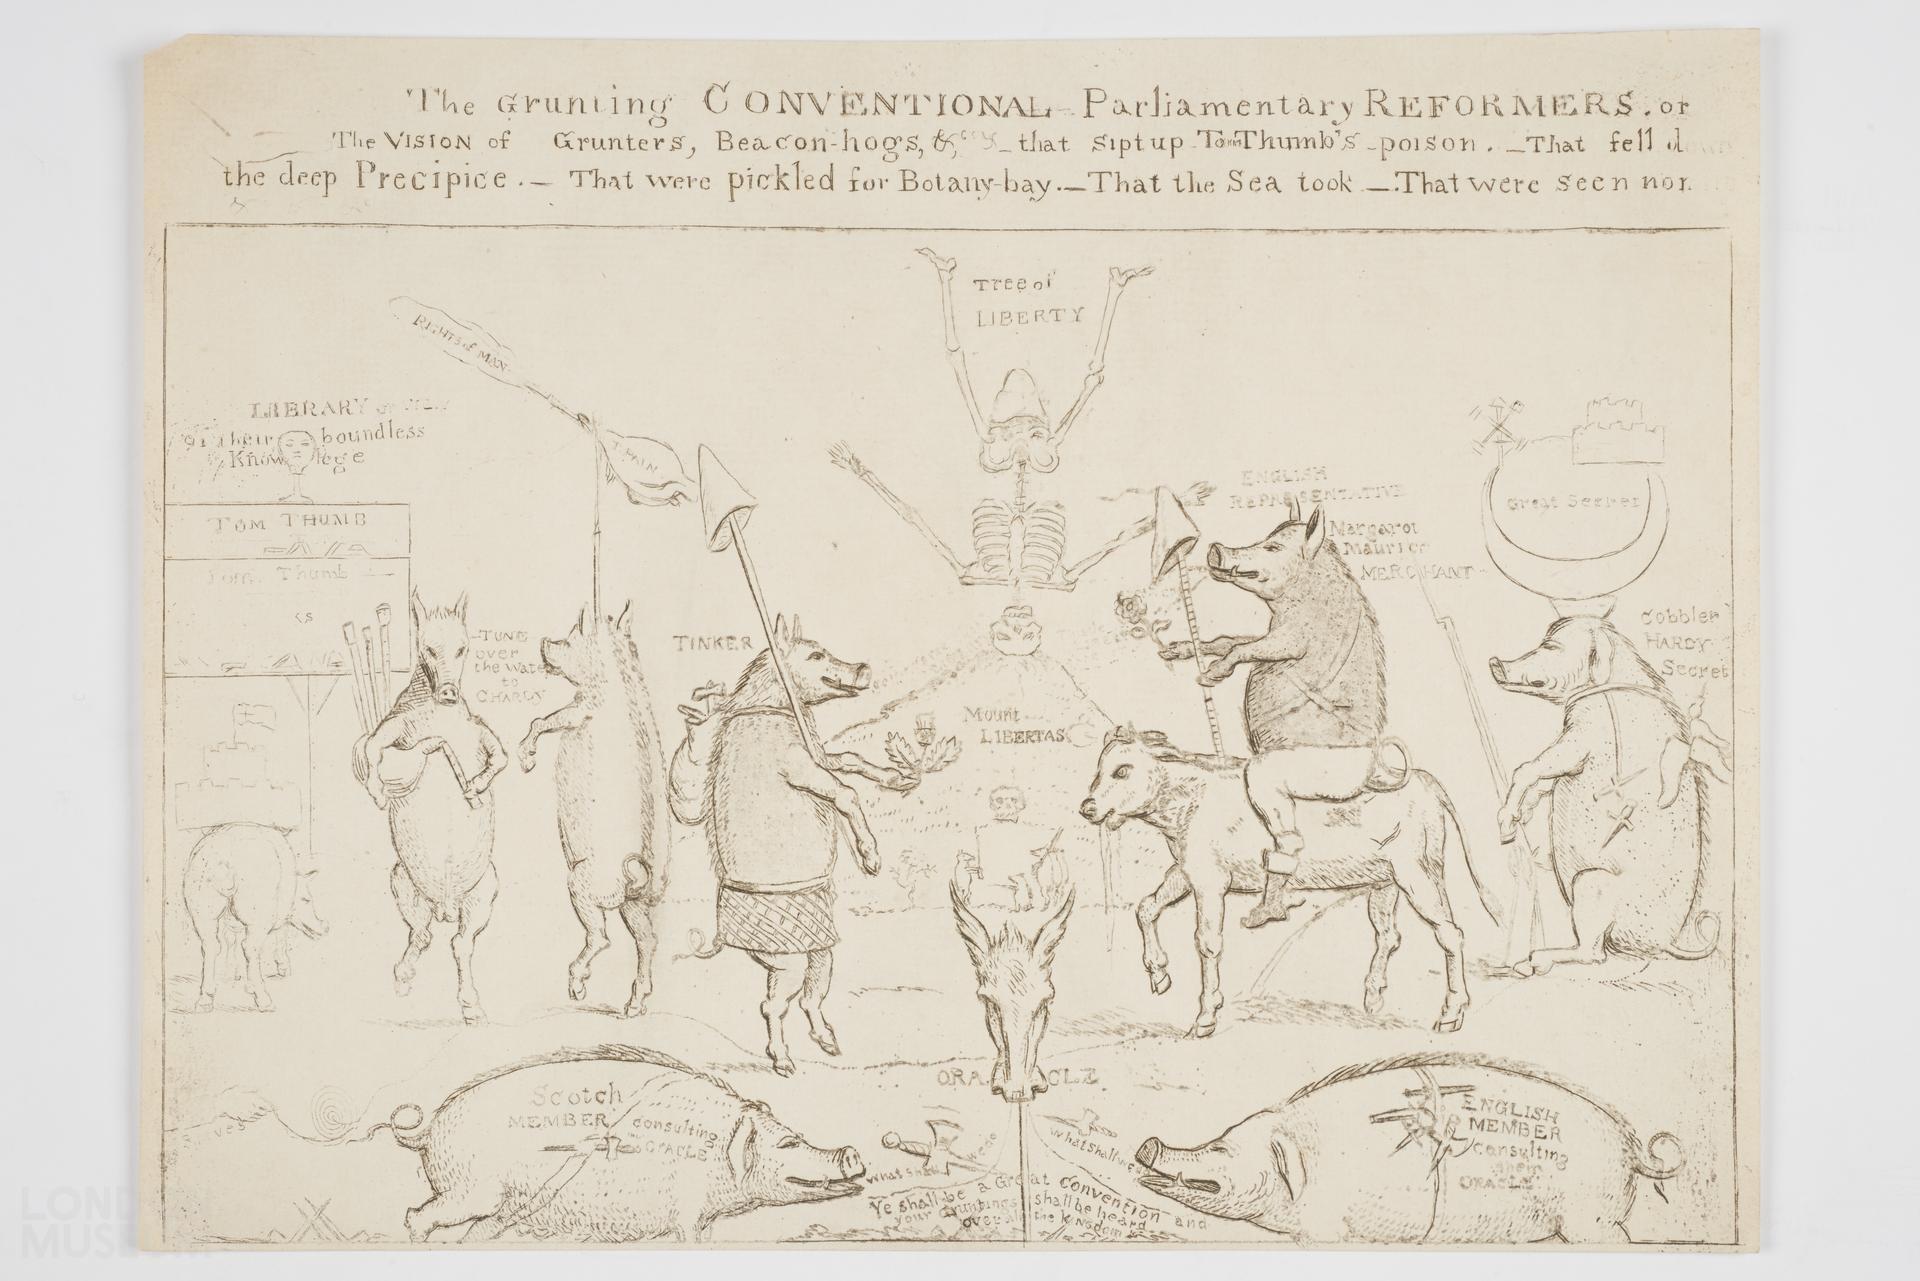 The Grunting CONVENTIONAL Parliamentary REFORMERS. or
The VISION of Grunters, Beacon-hogs, &c that sipt up Tom Thumb's poison. — That fell down
the deep Precipice. — That were pickled for Botany-bay. — That the Sea took — That were seen nor
Tree of
LIBERTY
RIGHTS of MAN
LIBERARY
of their boundless
Knowlege
T. PAIN
TOM THUMB
Tom Thumb
ENGLISH
REPRESENTATIVE
Margarot
Maurice
MERCHANT
Great Secret
Cobbler
HARDY
Secret
TUNE
over
the Water
to
CHARDY
TINKER
Mount
LIBERTAS
ORACLE
Scotch
MEMBER consulting
ORACLE
ENGLISH
MEMBER
consulting
them
ORACLE
what shall we do
what shall we
Ye shall be a Great Convention and
your Gruntings shall be heard
over all the Kingdom
LONDON
MUSEUM